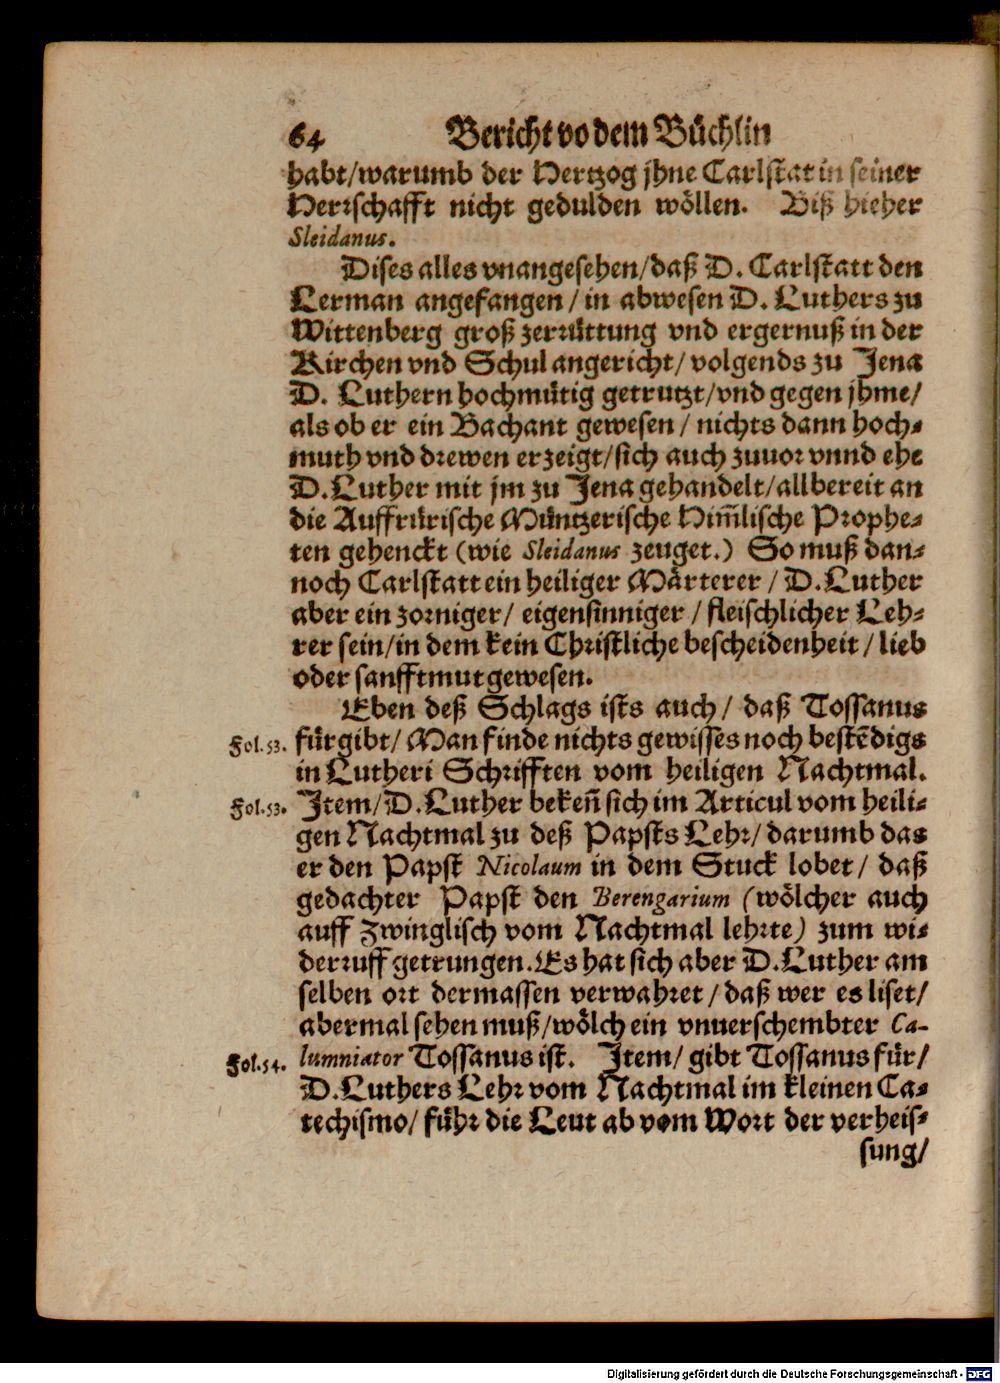 64 Bericht vo dem Büchlin
habt/warumb der Hertzog jhne Carlstat in seiner
Herrschafft nicht gedulden wöllen. Biß hieher
Sleidanus.
Dises alles vnangesehen/daß D. Carlstatt den
Lerman angefangen/in abwesen D. Luthers zu
Wittenberg groß zerrüttung vnd ergernuß in der
Kirchen vnd Schul angericht/volgends zu Jena
D. Luthern hochmütig getrutzt/vnd gegen jhme/
als ob er ein Bachant gewesen/nichts dann hoch-
muth vnd drewen erzeigt/sich auch zuuor vnnd ehe
D. Luther mit jm zu Jena gehandelt/allbereit an
die Auffrürische Müntzerische Him̄lische Prophe-
ten gehenckt (wie Sleidanus zeuget.) So muß dan-
noch Carlstatt ein heiliger Märterer/D. Luther
aber ein zorniger/eigensinniger/fleischlicher Leh-
rer sein/in dem kein Christliche bescheidenheit/lieb
oder sanfftmut gewesen.
Eben deß Schlags ists auch/daß Tossanus
Fol.53. fürgibt/Man finde nichts gewisses noch bestēdigs
in Lutheri Schrifften vom heiligen Nachtmal.
Fol.53. Item/D. Luther beken̄ sich im Articul vom heili-
gen Nachtmal zu deß Papsts Lehr/darumb das
er den Papst Nicolaum in dem Stuck lobet/daß
gedachter Papst den Berengarium (wölcher auch
auff Zwinglisch vom Nachtmal lehrte) zum wi-
derruff getrungen. Es hat sich aber D. Luther am
selben ort dermassen verwahret/daß wer es liset/
abermal sehen muß/wölch ein vnuerschembter Ca-
Fol.54. lumniator Tossanus ist. Item/gibt Tossanus für/
D. Luthers Lehr vom Nachtmal im kleinen Ca-
techismo/führ die Leut ab vom Wort der verheis-
sung/
Digitalisierung gefördert durch die Deutsche Forschungsgemeinschaft - DFG